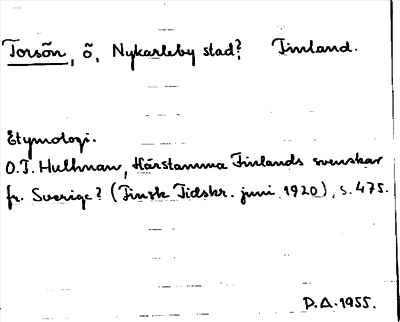 Torsön, ö, Nykarleby stad? Finland.
Etymologi.
O.T. Hulhman, Härstamma Finlands svenskar
fr. Sverige? (Finsk Tidskr. juni 1920), s. 475.
D.A. 1955.